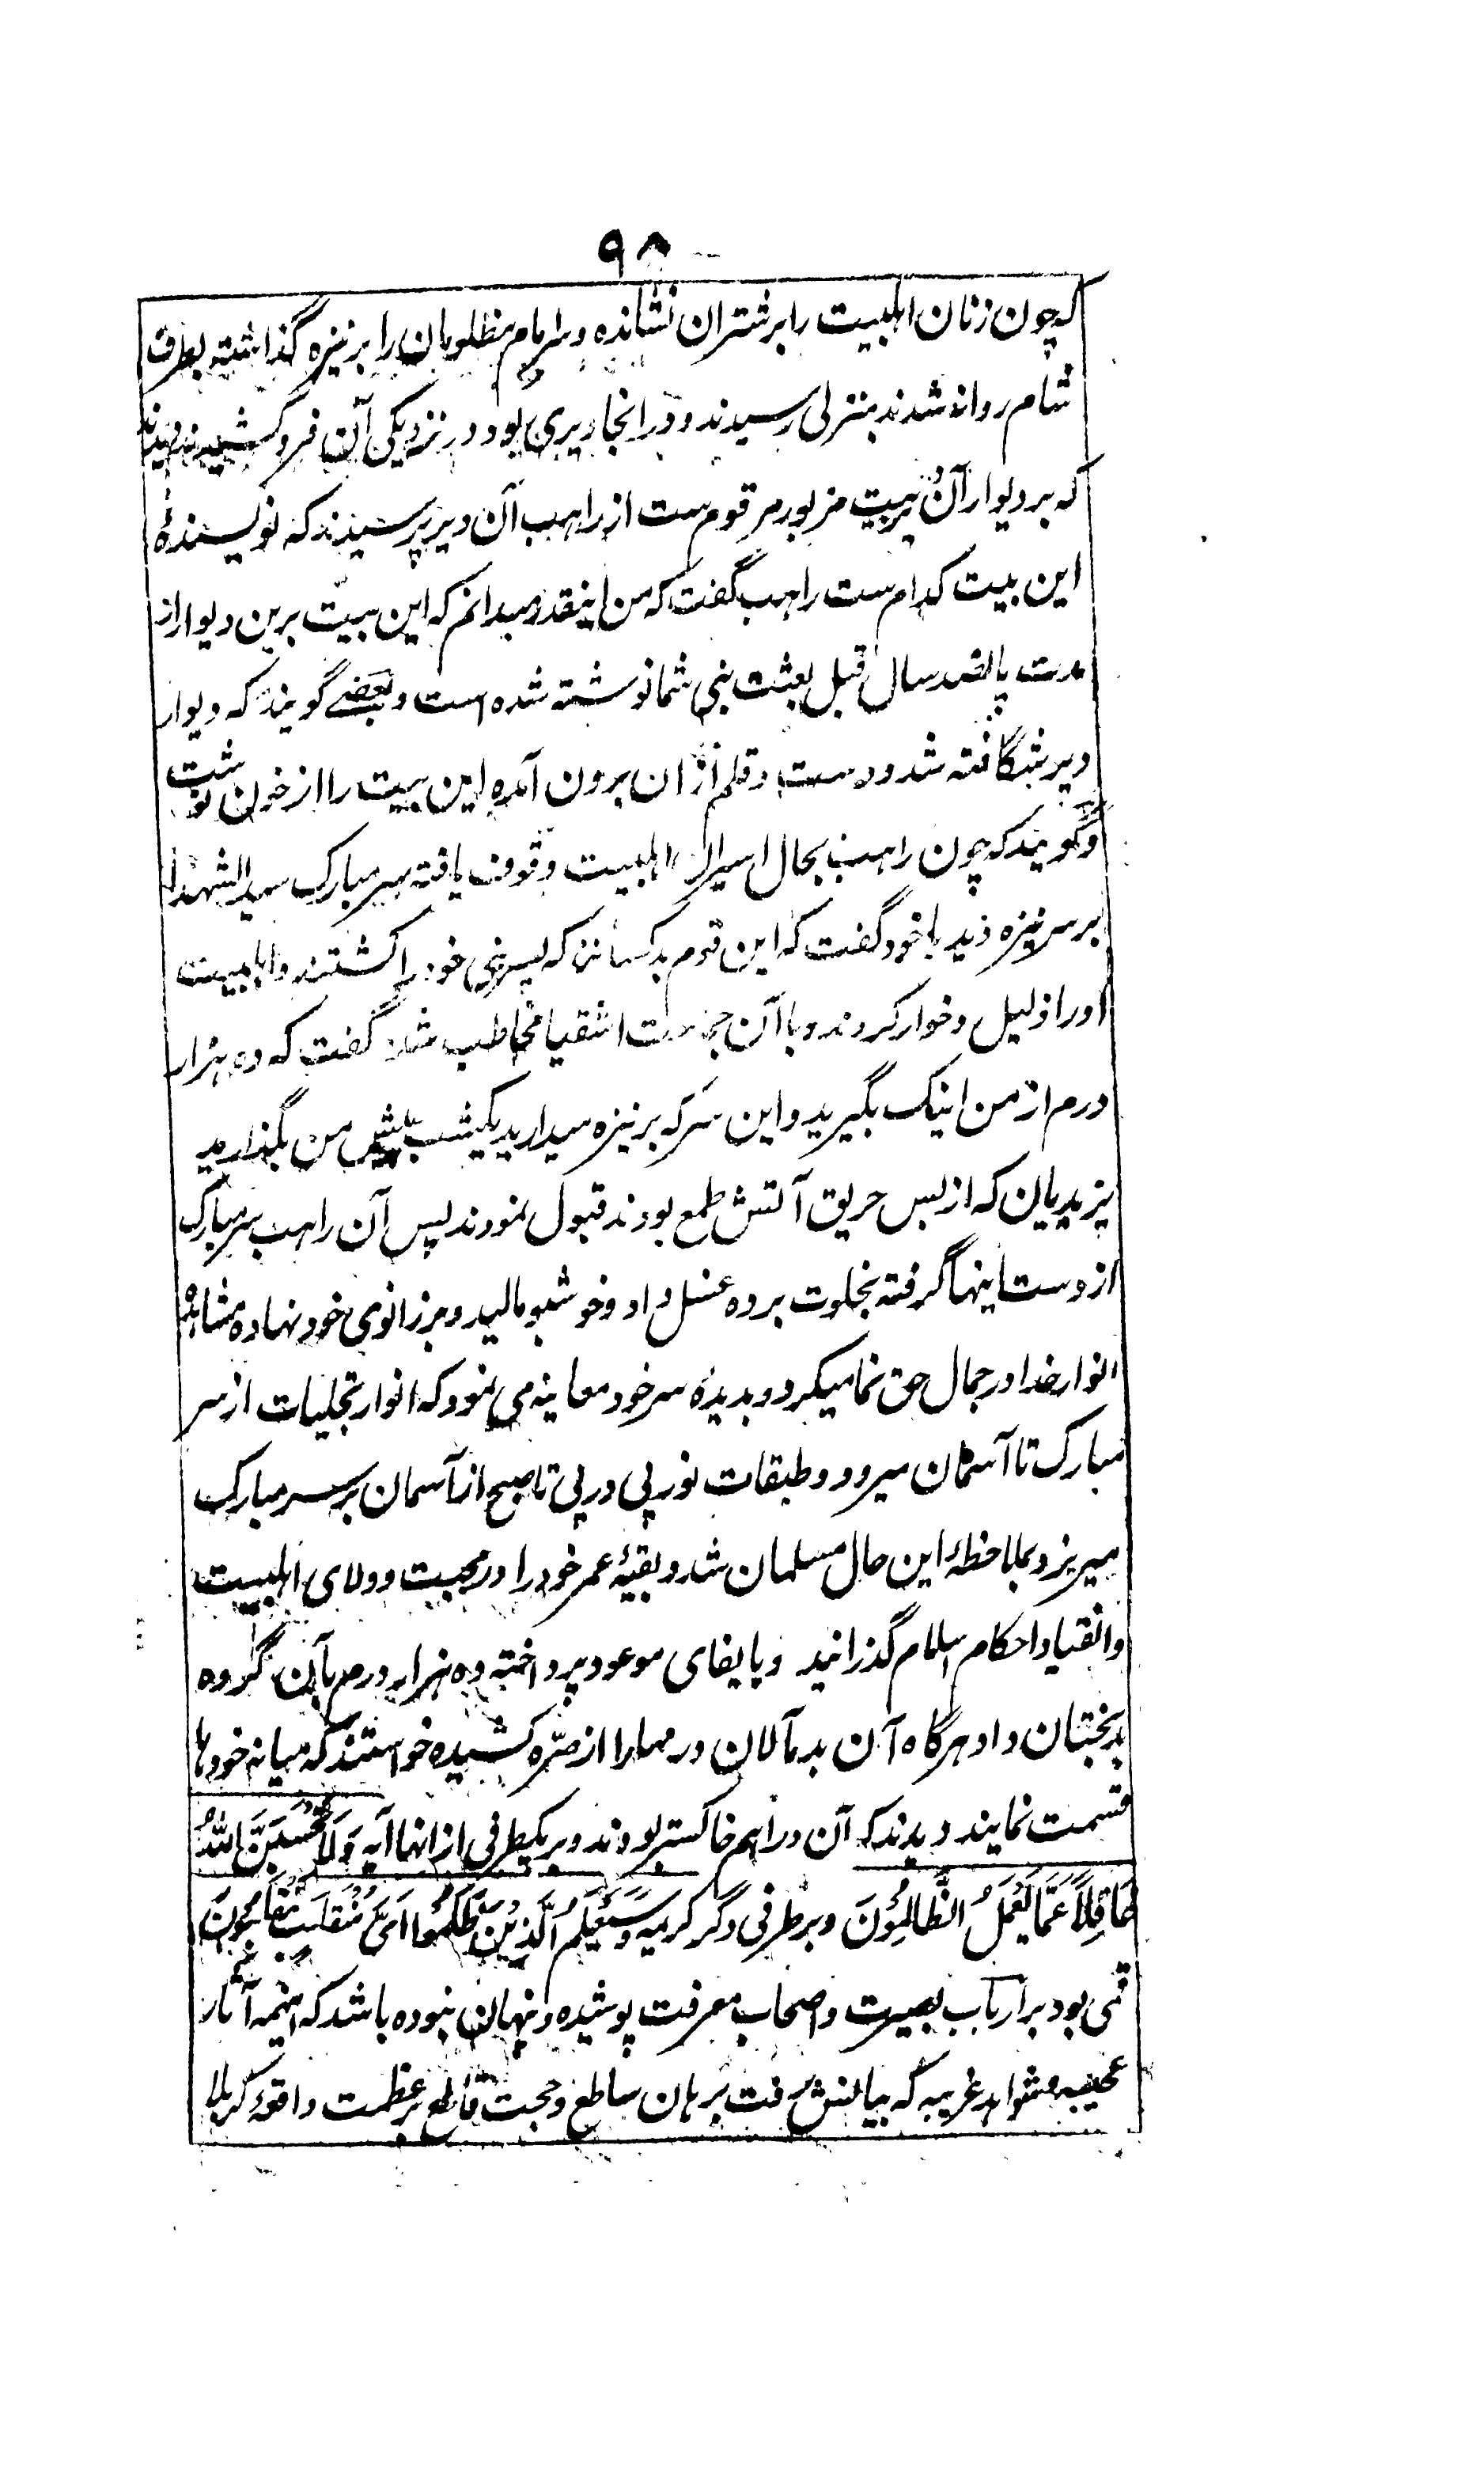 ۹۸
که چون زنان اهلبیت را بر شتران نشانده و سر امام مظلومان را بر نیزه گذاشته بطرف
شام روانه شدند بمنزلی رسیدند و در انجا دیری بود در نزدیکی آن فروکشیدند دیدند
که بر دیوار آن بیت مزبور مرقوم ست از راهب آن دیر پرسیدند که نویسندهٔ
این بیت کدام ست راهب گفت که من اینقدر میدانم که این بیت برین دیوار از
مدت پانصد سال قبل بعثت نبی شما نوشته شده است و بعضے گویند که دیوار
دیر شگافته شد و دست و قلم از ان برون آمده این بیت را از خون نوشت
و گویند که چون راهب بحال اسیران اهلبیت وقوف یافته سر مبارک سید الشهدا
بر سر نیزه دید با خود گفت که این قوم بد کسانند که پسر نبی خود را کشتند و اهلبیت
او را ذلیل و خوار کردند و با آن جماعت اشقیا مخاطب شد گفت که ده هزار
درم از من اینک بگیرید و این سر که بر نیزه میدارید یکشب پیش من بگذارید
یزیدیان که از بس حریق آتش طمع بودند قبول نمودند پس آن راهب سر مبارک
از دست اینها گرفته بخلوت برده غسل داد و خوشبو مالید و بر زانوی خود نهاده مشاهده
انوار خدا در جمال حق نما میکرد و بدیدهٔ سر خود معاینه می نمود که انوار تجلیات از سر
مبارک تا آسمان میرود و طبقات نور پی در پی تا صبح از آسمان بر سر مبارک
میریزد بملاحظهٔ این حال مسلمان شد و بقیهٔ عمر خود را در محبت و ولای اهلبیت
و انقیاد احکام اسلام گذرانید و با یفای موعود پرداخته ده هزار درم بآن گروه
بدبختان داد هرگاه آن بدمآلان درمها را از صرّه کشیده خواستند که میانه خودها
قسمت نمایند دیدند که آن دراهم خاکستر بودند و بر یکطرفی از انها آیه وَلَا تَحْسَبَنَّ اللّٰهَ
غَافِلًا عَمَّا یَعْمَلُ الظَّالِمُوْنَ و بر طرفی دگر کریمه وَسَیَعْلَمُ الَّذِیْنَ ظَلَمُوْا اَیَّ مُنْقَلَبٍ یَّنْقَلِبُوْنَ
بود بر ارباب بصیرت و اصحاب معرفت پوشیده و نهان نبوده باشد که اینهمه آثار
عجیبه و شواهد غریبه که بیانش رفت برهان ساطع و حجت قاطع بر عظمت واقعهٔ کربلا